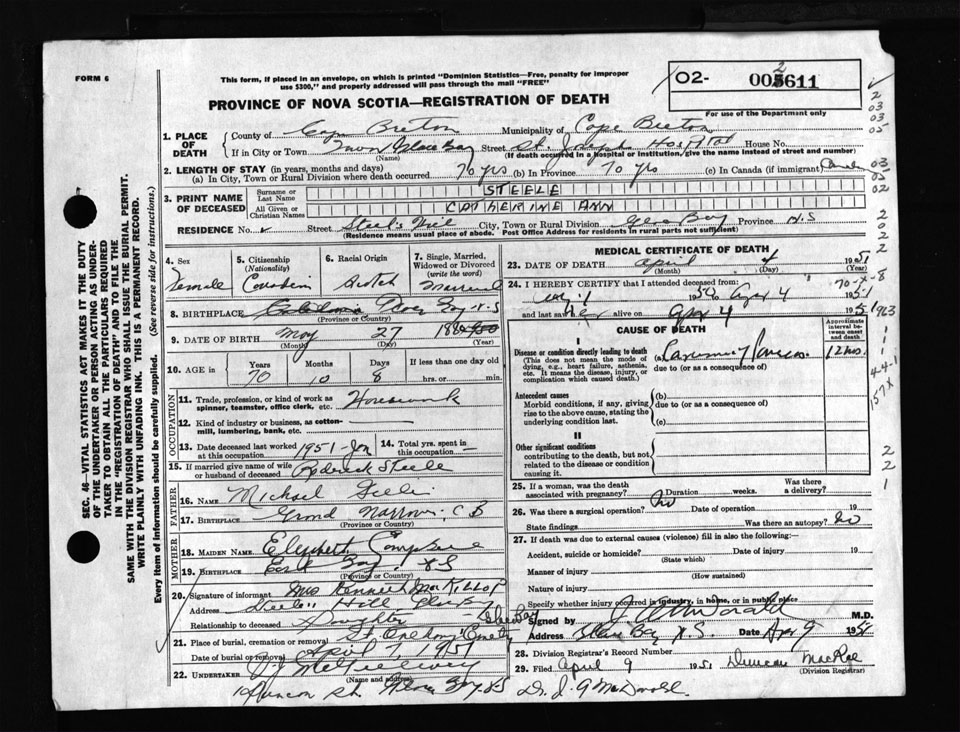 FORM 6
This form, if placed in an envelope, on which is printed "Dominion Statistics—Free, penalty for improper use $300," and properly addressed will pass through the mail "FREE"
O2- 005611
2
For use of the Department only
PROVINCE OF NOVA SCOTIA—REGISTRATION OF DEATH
1. PLACE OF DEATH
County of Cape Breton Municipality of Cape Breton
If in City or Town Town Glace Bay Street St. Joseph Hospital House No.
(Name) (If death occurred in a hospital or institution, give the name instead of street and number)
2. LENGTH OF STAY (in years, months and days)
(a) In City, Town or Rural Division where death occurred 70 yrs (b) In Province 70 yrs (c) In Canada (if immigrant)
3. PRINT NAME OF DECEASED
Surname or Last Name STEELE
All Given or Christian Names CATHERINE ANN
RESIDENCE No. Street Steele's Hill City, Town or Rural Division Glace Bay Province N.S
(Residence means usual place of abode. Post Office Address for residents in rural parts not sufficient)
4. Sex Female
5. Citizenship (Nationality) Canadian
6. Racial Origin Scotch
7. Single, Married, Widowed or Divorced (write the word) Married
8. BIRTHPLACE Glace Bay N.S
(Province or Country)
9. DATE OF BIRTH May 27
(Month) (Day) (Year)
10. AGE in Years 70 Months 10 Days 8 If less than one day old hrs. or min.
OCCUPATION
11. Trade, profession, or kind of work as spinner, teamster, office clerk, etc. Housework
12. Kind of industry or business, as cotton-mill, lumbering, bank, etc.
13. Date deceased last worked at this occupation 1951 - Jan
14. Total yrs. spent in this occupation
15. If married give name of wife or husband of deceased Roderick Steele
FATHER
16. NAME Michael
17. BIRTHPLACE Grand Narrows, C B
(Province or Country)
MOTHER
18. MAIDEN NAME Elizabeth
19. BIRTHPLACE East Bay N S
(Province or Country)
20. Signature of informant Mrs Kenneth MacKillop
Address Steele's Hill Glace Bay
Relationship to deceased Daughter
21. Place of burial, cremation or removal St Anthony's Cemetery
Date of burial or removal April 7, 1951
22. UNDERTAKER McGillivary
(Name and address)
St. Glace Bay NS
MEDICAL CERTIFICATE OF DEATH
23. DATE OF DEATH April 4 1951
(Month) (Day) (Year)
24. I HEREBY CERTIFY that I attended deceased from:
1950 Apr 4 1951
and last saw her alive on Apr 4 1951
CAUSE OF DEATH
Approximate interval between onset and death
I
Disease or condition directly leading to death
(This does not mean the mode of dying, e.g., heart failure, asthenia, etc. It means the disease, injury, or complication which caused death.)
(a) Carcinoma of Pancreas
due to (or as a consequence of)
Antecedent causes
Morbid conditions, if any, giving rise to the above cause, stating the underlying condition last.
(b)
due to (or as a consequence of)
(c)
II
Other significant conditions
contributing to the death, but not related to the disease or condition causing it.
25. If a woman, was the death associated with pregnancy? Duration weeks. Was there a delivery?
26. Was there a surgical operation? No Date of operation 19
State findings Was there an autopsy? No
27. If death was due to external causes (violence) fill in also the following:
Accident, suicide or homicide? Date of injury 19
(State which)
Manner of injury
(How sustained)
Nature of injury
Specify whether injury occurred in industry, in home, or in public place
Signed by M.D.
Address Glace Bay N.S. Date Apr 9
28. Division Registrar's Record Number
29. Filed April 9 1951 Duncan MacRae
(Division Registrar)
Dr. J. A McDonald
SEC. 46—VITAL STATISTICS ACT MAKES IT THE DUTY OF THE UNDERTAKER OR PERSON ACTING AS UNDERTAKER TO OBTAIN ALL THE PARTICULARS REQUIRED IN THE "REGISTRATION OF DEATH" AND TO FILE THE SAME WITH THE DIVISION REGISTRAR WHO SHALL ISSUE THE BURIAL PERMIT.
WRITE PLAINLY WITH UNFADING INK. THIS IS A PERMANENT RECORD.
Every item of information should be carefully supplied. (See reverse side for instructions.)